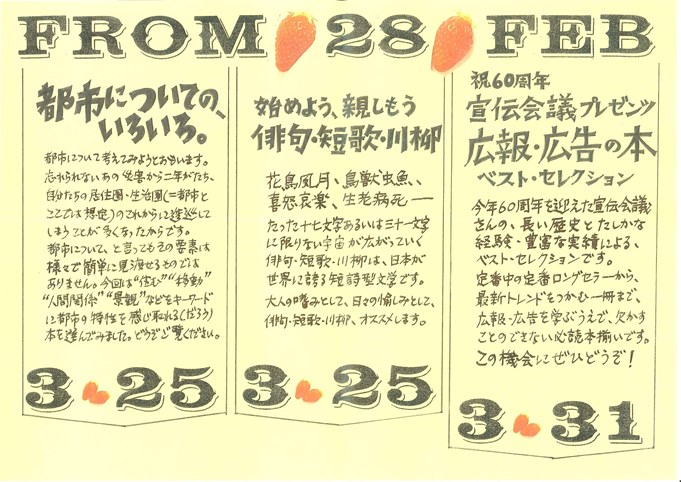 FROM 28 FEB
都市についての、
いろいろ。
都市について考えてみようとおもいます。
忘れられないあの災害から二年がたち、
自分たちの居住圏・生活圏(=都市と
ここでは想定)のこれからに逡巡して
しまうことが多くなったからです。
都市について、と言ってもその要素は
様々で簡単に見渡せるものでは
ありません。今回は"住む""移動"
"人間関係""景観"などをキーワード
に都市の特性を感じ取れる(だろう)
本を選んでみました。どうぞご覧ください。
3 25
始めよう、親しもう
俳句・短歌・川柳
花鳥風月、鳥獣虫魚、
喜怒哀楽、生老病死――
たった十七文字あるいは三十一文字
に限りない宇宙が広がっていく
俳句・短歌・川柳は、日本が
世界に誇る短詩型文学です。
大人の嗜みとして、日々の愉しみとして、
俳句・短歌・川柳、オススメします。
3 25
祝60周年
宣伝会議プレゼンツ
広報・広告の本
ベスト・セレクション
今年60周年を迎えた宣伝会議
さんの、長い歴史とたしかな
経験・豊富な実績による、
ベスト・セレクションです。
定番中の定番ロングセラーから、
最新トレンドをつかむ一冊まで、
広報・広告を学ぶうえで、欠かす
ことのできない必読本揃いです。
この機会にぜひどうぞ!
3 31